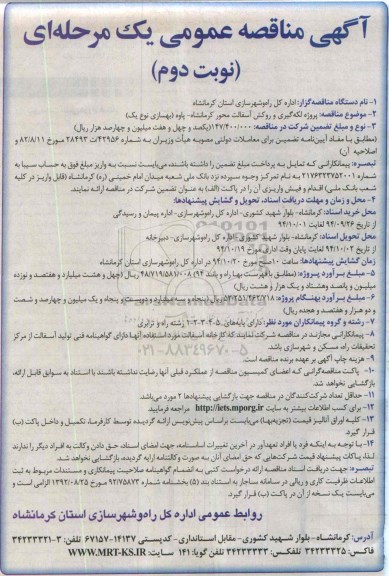 آگهی مناقصه عمومی یک مرحله‌ای
(نوبت دوم)
۱- نام دستگاه مناقصه‌گزار: اداره کل راه‌وشهرسازی استان کرمانشاه
۲- موضوع مناقصه: پروژه لکه‌گیری و روکش آسفالت محور کرمانشاه- پاوه (بهسازی نوع یک)
۳- نوع و مبلغ تضمین شرکت در مناقصه: ۱/۴۷۰/۴۰۰/۰۰۰ (یکصد و چهل و هفت میلیون و چهارصد هزار ریال)
(مطابق با مفاد آیین‌نامه تضمین برای معاملات دولتی مصوبه هیأت وزیران به شماره ۴۲۹۵۶/ت ۲۸۴۹۳ مورخ ۸۲/۸/۱۱ و
اصلاحیه آن)
تبصره: پیمانکارانی که تمایل به پرداخت مبلغ تضمین را داشته باشند، می‌بایست نسبت به واریز مبلغ فوق به حساب سیبا به
شماره ۲۱۷۶۴۳۲۷۵۲۰۰۱ به نام تمرکز وجوه سپرده نزد بانک ملی شعبه میدان امام خمینی (ره) کرمانشاه (قابل واریز در کلیه
شعب بانک ملی) اقدام و فیش واریزی آن را در پاکت (الف) به عنوان تضمین شرکت در مناقصه ارائه نمایند.
۴- محل و زمان و مهلت دریافت اسناد، تحویل و گشایش پیشنهادها:
محل خرید اسناد: کرمانشاه- بلوار شهید کشوری- اداره کل راه‌وشهرسازی- اداره پیمان و رسیدگی
از تاریخ ۹۴/۰۹/۲۶ لغایت ۹۴/۱۰/۰۱
محل تحویل اسناد: کرمانشاه- بلوار شهید کشوری- اداره کل راه‌وشهرسازی- دبیرخانه
از تاریخ ۹۴/۱۰/۰۲ لغایت پایان وقت اداری مورخ ۹۴/۱۰/۱۹
زمان گشایش پیشنهادها: ساعت ۱۰ صبح مورخ ۹۴/۱۰/۲۰ در اداره کل راه‌وشهرسازی استان کرمانشاه
۵- مبلغ برآورد پروژه: (مطابق با فهرست بهای راه و باند ۹۴) ۴۸/۷۱۹/۵۸۱/۰۰۸ ریال (چهل و هشت میلیارد و هفتصد و نوزده
میلیون و پانصد وهشتاد و یک هزار و هشت ریال)
۶- مبلغ برآورد بهنگام پروژه: ۵۴/۲۵۱/۴۶۲/۷۱۸ ریال (پنجاه و چهار میلیارد و دویست و پنجاه و یک میلیون و چهارصد و شصت
و دو هزار و هفتصد و هجده ریال)
۷- رشته و گروه پیمانکاران مورد نظر: دارای پایه‌های ۵-۴-۳-۲-۱ رشته راه و ترابری
۸- پیمانکارانی مجازند در مناقصه شرکت نمایند که کارخانه آسفالت مورد استفاده آنها دارای گواهینامه فنی تولید آسفالت از مرکز
تحقیقات راه، مسکن و شهرسازی باشد.
۹- هزینه چاپ آگهی بر عهده برنده مناقصه است.
۱۰- پاکت مناقصه‌گرانی که اعضای کمیسیون مناقصه از عملکرد قبلی آنها رضایت نداشته باشند با استناد به سوابق قابل ارائه،
بازگشایی نخواهد شد.
۱۱- حداقل تعداد شرکت‌کنندگان در مناقصه جهت بازگشایی پیشنهادها ۲ مورد می‌باشد.
۱۲- برای کسب اطلاعات بیشتر به سایت http://iets.mporg.ir مراجعه فرمایید.
۱۳- کلیه اوراق آنالیز قیمت (تجزیه‌بها) می‌بایست براساس پیش‌نویس ارائه گردیده توسط کارفرما، تکمیل و داخل پاکت (ب)
قرار گیرد.
۱۴- با توجه به اینکه فرد یا افراد تعهدآور در آخرین تغییرات اساسنامه، جهت امضای اسناد، حق دادن وکالت به افراد دیگر را ندارند
لذا، پاکات پیشنهاد قیمت شرکت‌هایی که حق امضای آنان به صورت وکالتنامه ارایه گردیده، بازگشایی نخواهد شد.
تبصره: جهت دریافت اسناد مناقصه ارائه درخواست کتبی به انضمام گواهینامه صلاحیت پیمانکاری و مستندات مربوط به ثبت
اطلاعات ظرفیت کاری و ریالی در سامانه ساجار به استناد بند (۵) بخشنامه شماره ۹۲/۷۵۸۷۳ مورخ ۱۳۹۲/۰۸/۲۵ الزامی است و
می‌بایست یک نسخه از آن در پاکت (ب) قرار گیرد.
روابط عمومی اداره کل راه‌وشهرسازی استان کرمانشاه
آدرس: کرمانشاه- بلوار شهید کشوری- مقابل استانداری- کدپستی ۱۴۱۳۷-۶۷۱۵۷ تلفن: ۳-۳۴۲۳۳۳۲۱
فاکس: ۳۴۲۳۳۳۲۵ تلفکس: ۳۴۲۳۳۳۳۳ تلفن گویا: ۱۴۱ سایت: WWW.MRT-KS.IR
۰۲۱-۸۸۳۴۹۶۷۰-۵